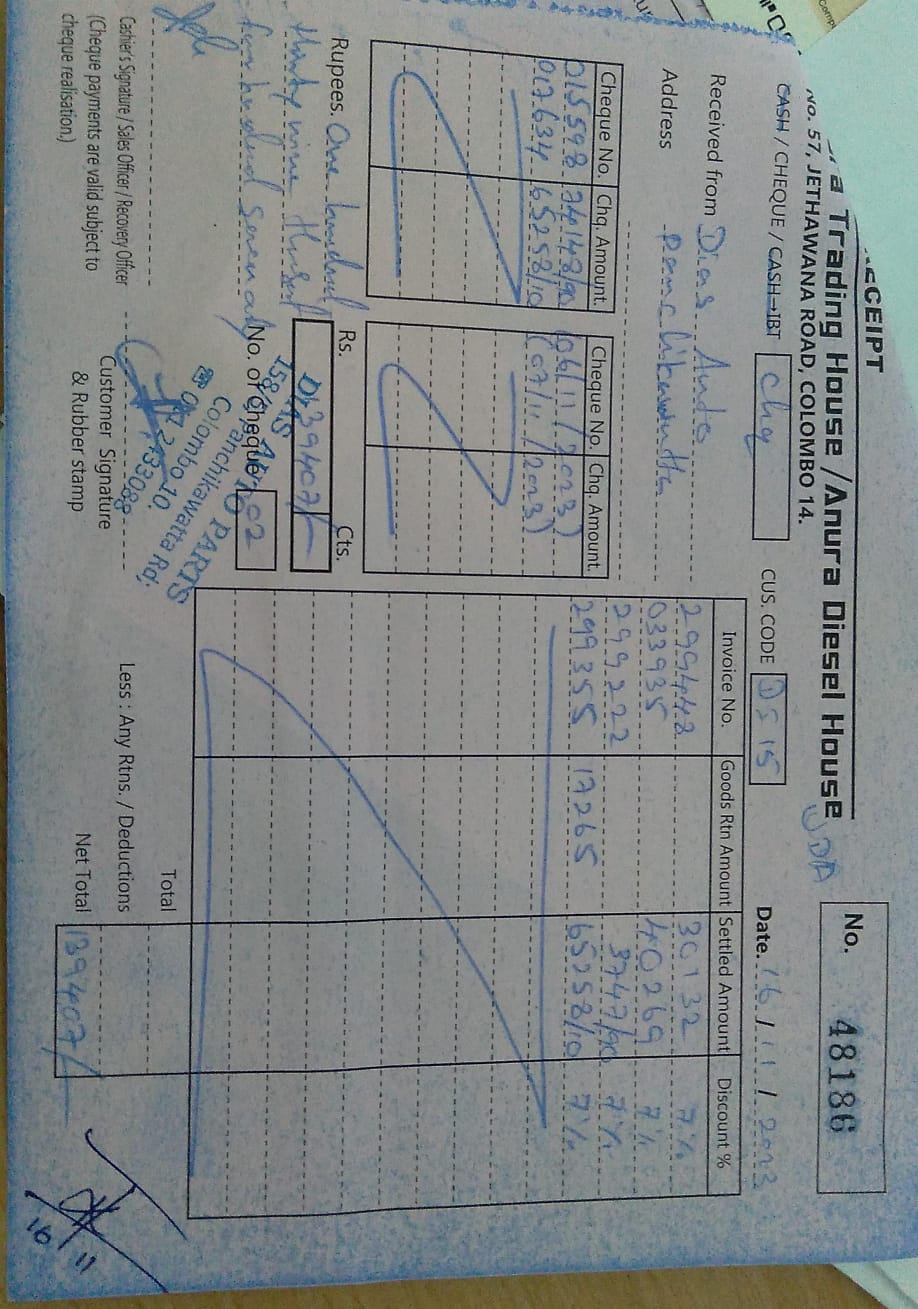 RECEIPT
No. 48186
a Trading House /Anura Diesel House
UDA
No. 57, JETHAWANA ROAD, COLOMBO 14.
CASH / CHEQUE / CASH→IBT Chq
CUS. CODE DS 15
Date. 16 / 11 / 2023
Received from Dias Auto
Address Panchikawatta
Cheque No. Chq. Amount. Cheque No. Chq. Amount.
015598 74148/90 (06/11/2023)
017634 65258/10 (07/11/2023)
Invoice No. Goods Rtn Amount Settled Amount Discount %
299448 30132 7%
033935 40269 7%
299222 3747/90 7%
299355 17265 65258/10 7%
Rupees. One hundred
thirty nine
four hundred seven
Rs. 139407/ Cts.
No. of Cheque 02
AUTO PARTS
Panchikawatta Rd,
Colombo-10.
Total
Less : Any Rtns. / Deductions
Net Total 139407/
Cashier's Signature / Sales Officer / Recovery Officer
(Cheque payments are valid subject to
cheque realisation.)
Customer Signature
& Rubber stamp
16/11